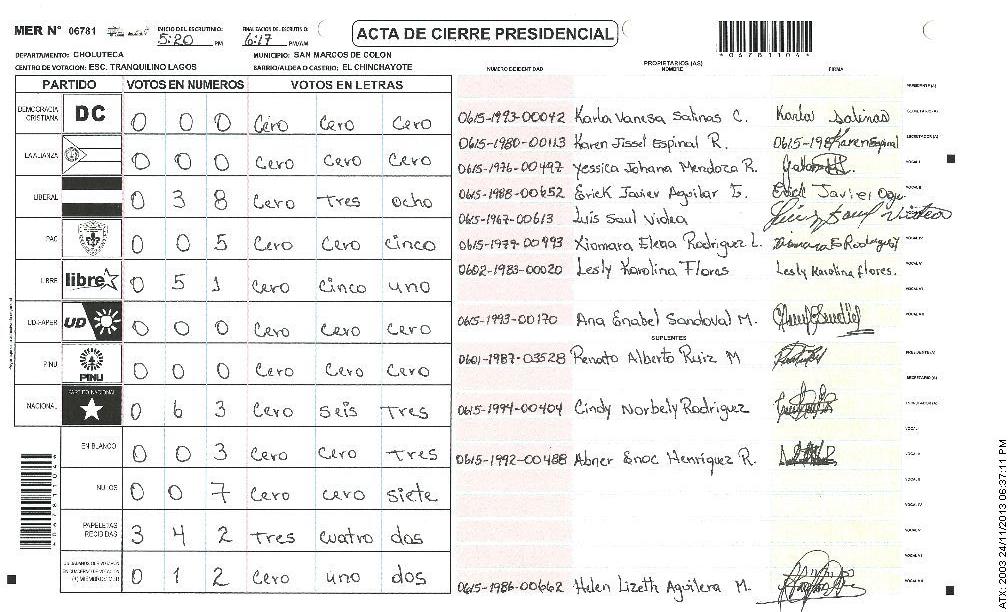 MER N° 06781 INICIO DEL ESCRUTINIO: 5:20 PM FINALIZACION DEL ESCRUTINIO: 6:17 PM/AM
ACTA DE CIERRE PRESIDENCIAL
*06781104*
DEPARTAMENTO: CHOLUTECA MUNICIPIO: SAN MARCOS DE COLON
CENTRO DE VOTACION: ESC. TRANQUILINO LAGOS BARRIO/ALDEA O CASERIO: EL CHINCHAYOTE
PARTIDO VOTOS EN NUMEROS VOTOS EN LETRAS
DEMOCRACIA CRISTIANA DC 0 0 0 Cero Cero Cero
LA ALIANZA 0 0 0 Cero Cero Cero
LIBERAL 0 3 8 Cero Tres ocho
PAC 0 0 5 Cero Cero cinco
LIBRE libre 0 5 1 Cero cinco uno
UD-FAPER UD 0 0 0 Cero Cero Cero
PINU PINU 0 0 0 Cero Cero Cero
NACIONAL PARTIDO NACIONAL 0 6 3 Cero seis Tres
EN BLANCO 0 0 3 Cero Cero Tres
NULOS 0 0 7 Cero cero siete
PAPELETAS RECIBIDAS 3 4 2 Tres cuatro dos
0 1 2 Cero uno dos
NUMERO DE IDENTIDAD PROPIETARIOS (AS) NOMBRE FIRMA
PRESIDENTE (A)
0615-1993-00042 Karla Vanesa Salinas C. Karla Salinas SECRETARIO (A)
0615-1980-00113 Karen Jissel Espinal R. Karen Espinal ESCRUTADOR (A)
0615-1976-00497 Yessica Johana Mendoza R. VOCAL I
0615-1988-00652 Erick Javier Aguilar Erick Javier VOCAL II
0615-1967-00613 Luis Saul Videa
0615-1977-00493 Xiomara Elena Rodriguez L. Xiomara E Rodriguez VOCAL IV
0602-1983-00020 Lesly Karolina Flores Lesly Karolina flores. VOCAL V
0615-1993-00170 Ana Enabel Sandoval M.
SUPLENTES
0601-1987-03528 Renato Alberto Ruiz M PRESIDENTE (A)
SECRETARIO (A)
0615-1994-00404 Cindy Norbely Rodriguez ESCRUTADOR (A)
0615-1992-00488 Abner Enoc Henriquez R.
0615-1986-00662 Helen Lizeth Aguilera M.
ATX 2003 24/11/2013 06:37:11 PM